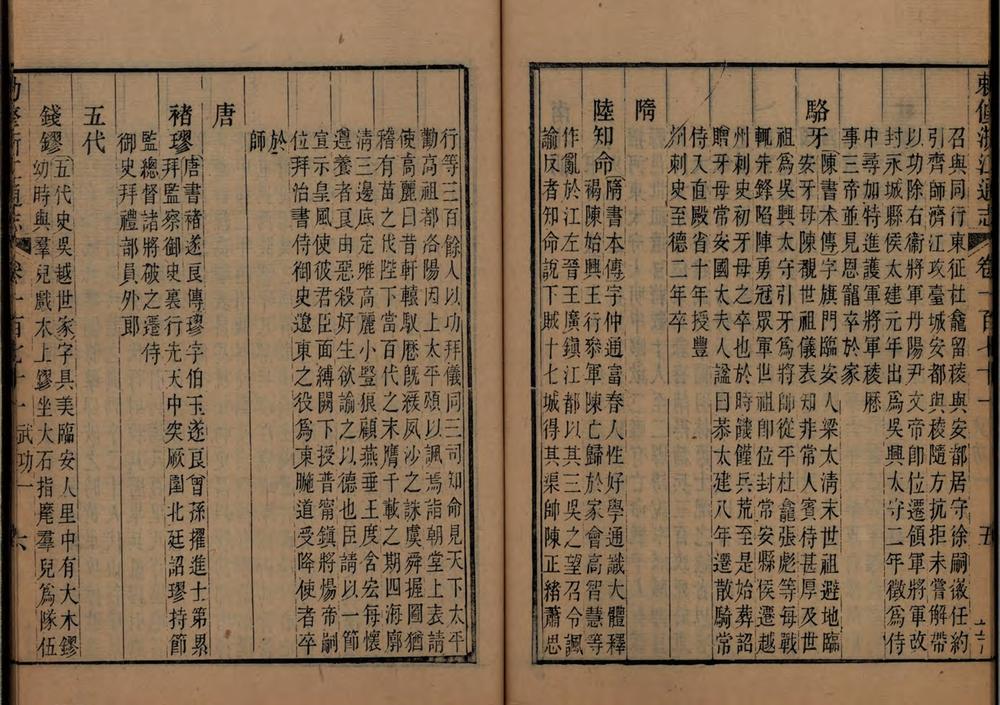 敕修浙江通志 卷一百七十一 五
召與同行東征杜龕留稜與安都居守徐嗣徽任約
引齊師濟江攻臺城安都與稜隨方抗拒未嘗解帶
以功除右衞將軍丹陽尹文帝卽位遷領軍將軍改
封永城縣侯太建元年出爲吳興太守二年徵爲侍
中尋加特進護軍將軍稜歷
事三帝並見恩寵卒於家
駱牙陳書本傳字旗門臨安人梁太清末世祖避地臨
安牙母陳覩世祖儀表知非常人賓待甚厚及世
祖爲吳興太守引牙爲將帥從平杜龕張彪等每戰
輒先鋒陷陣勇冠眾軍世祖卽位封常安縣侯遷越
州刺史初牙母之卒也於時饑僅兵荒至是始葬詔
贈牙母常安國太夫人諡曰恭太建八年還散騎常
侍入直殿省十年授豐
州刺史至德二年卒
隋
陸知命隋書本傳字仲通富春人性好學通識大體釋
褐陳始興王行叅軍陳亡歸於家會高智慧等
作亂於江左晉王廣鎭江都以其三吳之望召令諷
諭反者知命說下賊十七城得其渠帥陳正緒蕭思
行等三百餘人以功拜儀同三司知命見天下太平
勸高祖都洛陽因上太平頌以諷焉詣朝堂上表請
使高麗曰昔軒轅馭歷旣緩夙沙之誅虞舜握圖猶
稽有苗之伐陛下當百代之末膺千載之期四海廓
清三邊底定唯高麗小豎狼顧燕垂王度含宏每懷
遵養者良由惡殺好生欲諭之以德也臣請以一節
宣示皇風使彼君臣面縛闕下授普甯鎭將煬帝嗣
位拜治書侍御史遼東之役爲東暆道受降使者卒
於
師
唐
褚璆唐書褚遂良傳璆字伯玉遂良曾孫擢進士第累
拜監察御史裏行先天中突厥圍北廷詔璆持節
監總督諸將破之遷侍
御史拜禮部員外郎
五代
錢鏐五代史吳越世家字具美臨安人里中有大木鏐
幼時與羣兒戲木上鏐坐大石指麾羣兒爲隊伍
卷一百七十一 武功一 六